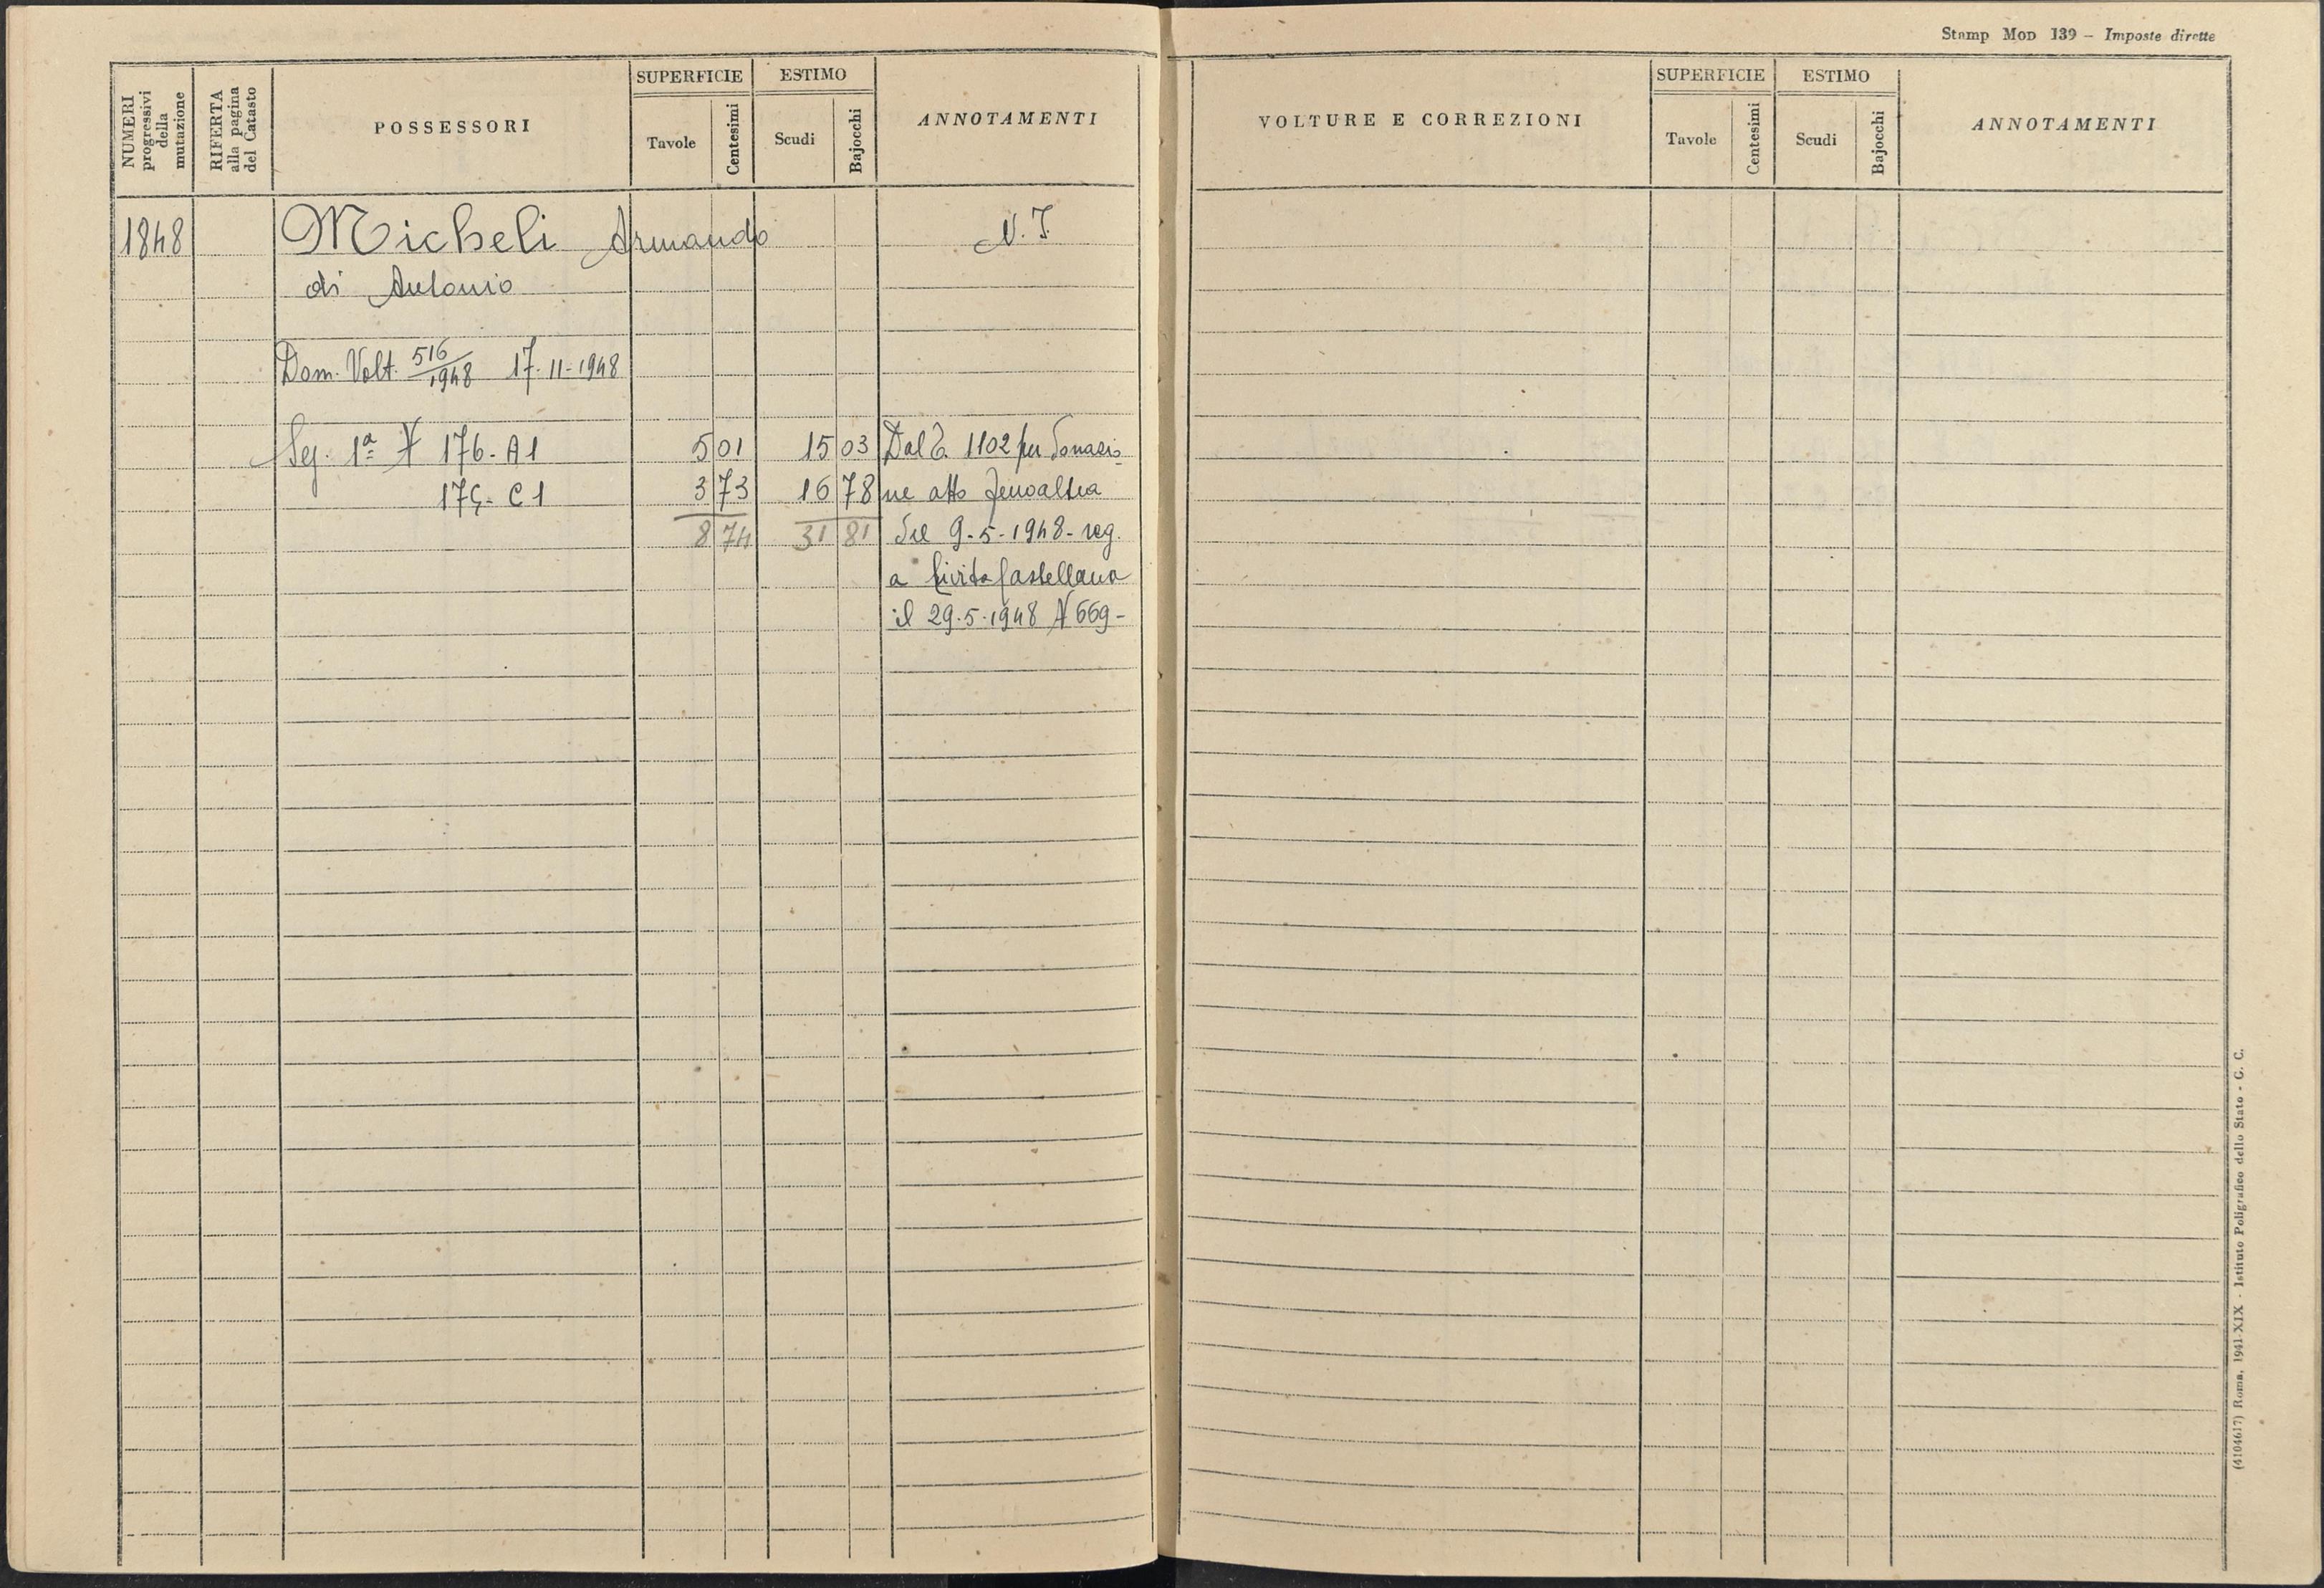 Stamp Mod 139 – Imposte dirette
NUMERI progressivi della mutazione
RIFERTA alla pagina del Catasto
POSSESSORI
SUPERFICIE
Tavole
Centesimi
ESTIMO
Scudi
Bajocchi
ANNOTAMENTI
VOLTURE E CORREZIONI
SUPERFICIE
Tavole
Centesimi
ESTIMO
Scudi
Bajocchi
ANNOTAMENTI
1848 Micheli Armando N. I.
di Antonio
Dom. Volt. 516/1948 17-11-1948
Sez. 1ª N 176-A1 5 01 15 03 Dal C. 1102 per donazio
175-C1 3 73 16 78 ne atto Zenoaltea
8 74 31 81 del 9-5-1948-reg.
a Civita Castellana
il 29.5.1948 N 669-
(4104617) Roma, 1941-XIX - Istituto Poligrafico dello Stato - G. C.